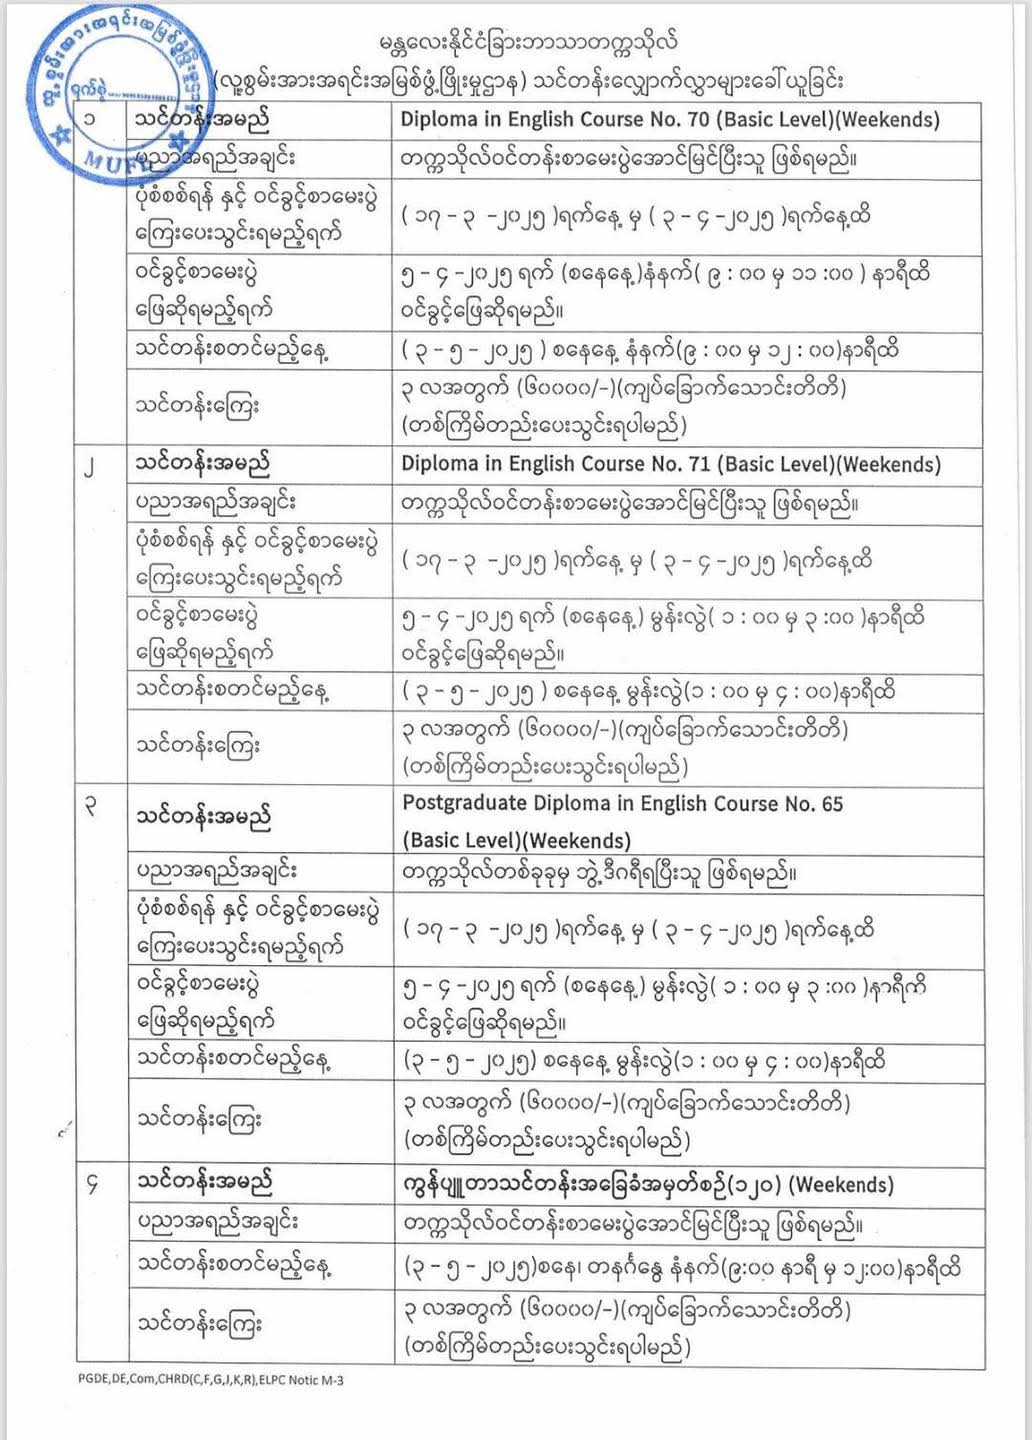 လူ့စွမ်းအားအရင်းအမြစ်ဖွံ့ဖြိုးမှုဌာန
ရက်စွဲ
MUFL
မန္တလေးနိုင်ငံခြားဘာသာတက္ကသိုလ်
(လူ့စွမ်းအားအရင်းအမြစ်ဖွံ့ဖြိုးမှုဌာန) သင်တန်းလျှောက်လွှာများခေါ်ယူခြင်း
၁ သင်တန်းအမည် Diploma in English Course No. 70 (Basic Level)(Weekends)
ပညာအရည်အချင်း တက္ကသိုလ်ဝင်တန်းစာမေးပွဲအောင်မြင်ပြီးသူ ဖြစ်ရမည်။
ပုံစံစစ်ရန် နှင့် ဝင်ခွင့်စာမေးပွဲ
ကြေးပေးသွင်းရမည့်ရက် ( ၁၇ – ၃ –၂၀၂၅ )ရက်နေ့ မှ ( ၃ – ၄ –၂၀၂၅ )ရက်နေ့ထိ
ဝင်ခွင့်စာမေးပွဲ ၅ – ၄ –၂၀၂၅ ရက် (စနေနေ့)နံနက်( ၉ : ၀၀ မှ ၁၁ :၀၀ ) နာရီထိ
ဖြေဆိုရမည့်ရက် ဝင်ခွင့်ဖြေဆိုရမည်။
သင်တန်းစတင်မည့်နေ့ ( ၃ – ၅ – ၂၀၂၅ ) စနေနေ့ နံနက်(၉ : ၀၀ မှ ၁၂ : ၀၀)နာရီထိ
သင်တန်းကြေး ၃ လအတွက် (၆၀၀၀၀/–)(ကျပ်ခြောက်သောင်းတိတိ)
(တစ်ကြိမ်တည်းပေးသွင်းရပါမည်)
၂ သင်တန်းအမည် Diploma in English Course No. 71 (Basic Level)(Weekends)
ပညာအရည်အချင်း တက္ကသိုလ်ဝင်တန်းစာမေးပွဲအောင်မြင်ပြီးသူ ဖြစ်ရမည်။
ပုံစံစစ်ရန် နှင့် ဝင်ခွင့်စာမေးပွဲ
ကြေးပေးသွင်းရမည့်ရက် ( ၁၇ – ၃ –၂၀၂၅ )ရက်နေ့ မှ ( ၃ – ၄ –၂၀၂၅ )ရက်နေ့ထိ
ဝင်ခွင့်စာမေးပွဲ ၅ – ၄ –၂၀၂၅ ရက် (စနေနေ့) မွန်းလွဲ( ၁ : ၀၀ မှ ၃ : ၀၀ )နာရီထိ
ဖြေဆိုရမည့်ရက် ဝင်ခွင့်ဖြေဆိုရမည်။
သင်တန်းစတင်မည့်နေ့ ( ၃ – ၅ – ၂၀၂၅ ) စနေနေ့ မွန်းလွဲ(၁ : ၀၀ မှ ၄ : ၀၀)နာရီထိ
သင်တန်းကြေး ၃ လအတွက် (၆၀၀၀၀/–)(ကျပ်ခြောက်သောင်းတိတိ)
(တစ်ကြိမ်တည်းပေးသွင်းရပါမည်)
၃ သင်တန်းအမည် Postgraduate Diploma in English Course No. 65
(Basic Level)(Weekends)
ပညာအရည်အချင်း တက္ကသိုလ်တစ်ခုခုမှ ဘွဲ့ဒီဂရီရပြီးသူ ဖြစ်ရမည်။
ပုံစံစစ်ရန် နှင့် ဝင်ခွင့်စာမေးပွဲ
ကြေးပေးသွင်းရမည့်ရက် ( ၁၇ – ၃ –၂၀၂၅ )ရက်နေ့ မှ ( ၃ – ၄ –၂၀၂၅ )ရက်နေ့ထိ
ဝင်ခွင့်စာမေးပွဲ ၅ – ၄ –၂၀၂၅ ရက် (စနေနေ့) မွန်းလွဲ( ၁ : ၀၀ မှ ၃ :၀၀ )နာရီထိ
ဖြေဆိုရမည့်ရက် ဝင်ခွင့်ဖြေဆိုရမည်။
သင်တန်းစတင်မည့်နေ့ (၃ – ၅ – ၂၀၂၅) စနေနေ့ မွန်းလွဲ(၁ : ၀၀ မှ ၄ : ၀၀)နာရီထိ
သင်တန်းကြေး ၃ လအတွက် (၆၀၀၀၀/–)(ကျပ်ခြောက်သောင်းတိတိ)
(တစ်ကြိမ်တည်းပေးသွင်းရပါမည်)
၄ သင်တန်းအမည် ကွန်ပျူတာသင်တန်းအခြေခံအမှတ်စဉ်(၁၂၀) (Weekends)
ပညာအရည်အချင်း တက္ကသိုလ်ဝင်တန်းစာမေးပွဲအောင်မြင်ပြီးသူ ဖြစ်ရမည်။
သင်တန်းစတင်မည့်နေ့ (၃ – ၅ – ၂၀၂၅)စနေ၊ တနင်္ဂနွေ နံနက်(၉:၀၀ နာရီ မှ ၁၂:၀၀)နာရီထိ
သင်တန်းကြေး ၃ လအတွက် (၆၀၀၀၀/–)(ကျပ်ခြောက်သောင်းတိတိ)
(တစ်ကြိမ်တည်းပေးသွင်းရပါမည်)
PGDE,DE,Com,CHRD(C,F,G,J,K,R),ELPC Notic M-3